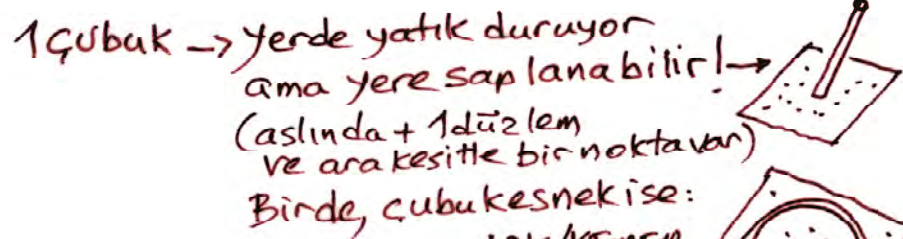 1 Çubuk → yerde yatık duruyor
ama yere saplanabilir! →
(aslında + 1 düzlem
ve arakesitte bir nokta var)
Birde, çubuk esnek ise: